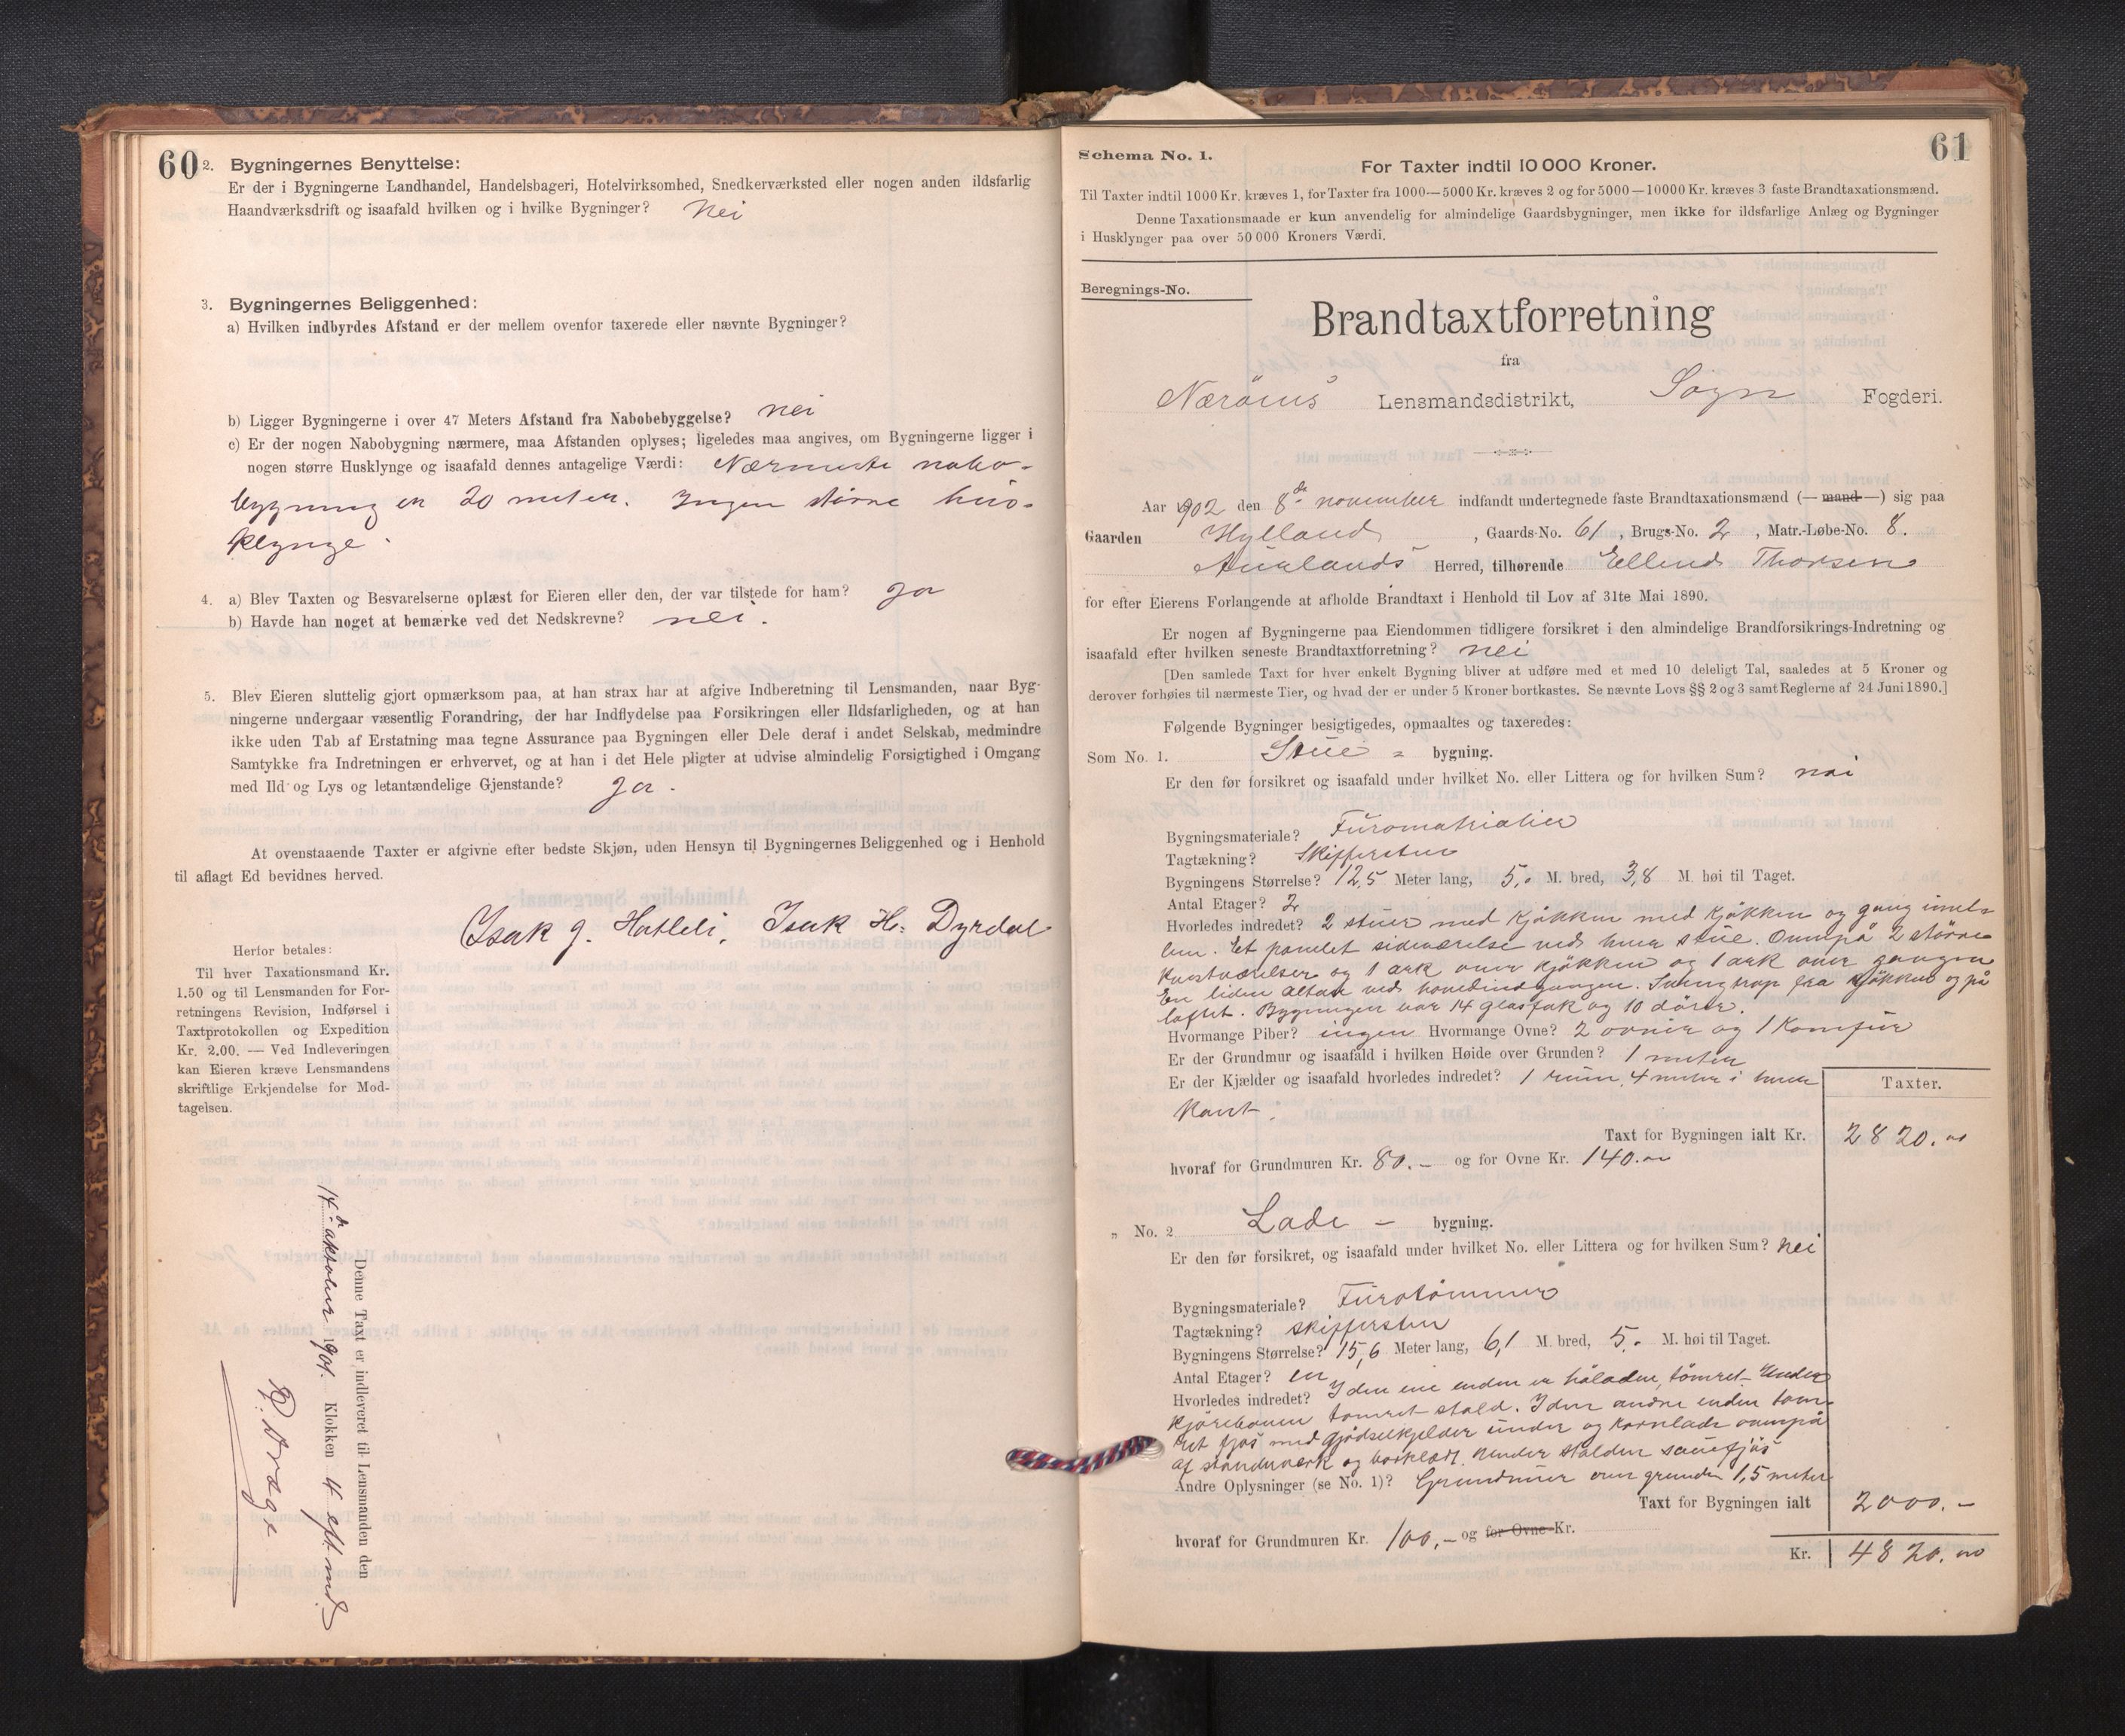 60
2. Bygningernes Benyttelse:
Er der i Bygningerne Landhandel, Handelsbageri, Hotelvirksomhed, Snedkerværksted eller nogen anden ildsfarlig
Haandværksdrift og isaafald hvilken og i hvilke Bygninger? Nei
3. Bygningernes Beliggenhed:
a) Hvilken indbyrdes Afstand er der mellem ovenfor taxerede eller nævnte Bygninger?
b) Ligger Bygningerne i over 47 Meters Afstand fra Nabobebyggelse? nei
c) Er der nogen Nabobygning nærmere, maa Afstanden oplyses; ligeledes maa angives, om Bygningerne ligger i
nogen større Husklynge og isaafald dennes antagelige Værdi: Nærmeste nabo-
bygning er 20 meter. Ingen større hus-
klynge.
4. a) Blev Taxten og Besvarelserne oplæst for Eieren eller den, der var tilstede for ham? Ja
b) Havde han noget at bemærke ved det Nedskrevne? nei.
5. Blev Eieren sluttelig gjort opmærksom paa, at han strax har at afgive Indberetning til Lensmanden, naar Byg-
ningerne undergaar væsentlig Forandring, der har Indflydelse paa Forsikringen eller Ildsfarligheden, og at han
ikke uden Tab af Erstatning maa tegne Assurance paa Bygningen eller Dele deraf i andet Selskab, medmindre
Samtykke fra Indretningen er erhvervet, og at han i det Hele pligter at udvise almindelig Forsigtighed i Omgang
med Ild og Lys og letantændelige Gjenstande? Ja.
At ovenstaaende Taxter er afgivne efter bedste Skjøn, uden Hensyn til Bygningernes Beliggenhed og i Henhold
til aflagt Ed bevidnes herved.
Isak J. Hatleli, Isak H. Dyrdal
Herfor betales:
Til hver Taxationsmand Kr.
1,50 og til Lensmanden for For-
retningens Revision, Indførsel i
Taxtprotokollen og Expedition
Kr. 2.00. — Ved Indleveringen
kan Eieren kræve Lensmandens
skriftlige Erkjendelse for Mod-
tagelsen.
Denne Taxt er indleveret til Lensmanden den
14de oktober 1901. Klokken 4 eftmd
Drage
61
Schema No. 1.
For Taxter indtil 10 000 Kroner.
Til Taxter indtil 1000 Kr. kræves 1, for Taxter fra 1000—5000 Kr. kræves 2 og for 5000—10000 Kr. kræves 3 faste Brandtaxationsmænd.
Denne Taxationsmaade er kun anvendelig for almindelige Gaardsbygninger, men ikke for ildsfarlige Anlæg og Bygninger
i Husklynger paa over 50 000 Kroners Værdi.
Beregnings-No.
Brandtaxtforretning
fra
Nærøens Lensmandsdistrikt, Sogn Fogderi.
Aar 1902 den 8de november indfandt undertegnede faste Brandtaxationsmænd (— mand —) sig paa
Gaarden Hylland, Gaards-No. 61, Brugs-No. 2, Matr.-Løbe-No. 8.
Aurlands Herred, tilhørende Ellend Thorsen
for efter Eierens Forlangende at afholde Brandtaxt i Henhold til Lov af 31te Mai 1890.
Er nogen af Bygningerne paa Eiendommen tidligere forsikret i den almindelige Brandforsikrings-Indretning og
isaafald efter hvilken seneste Brandtaxtforretning? nei
[Den samlede Taxt for hver enkelt Bygning bliver at udføre med et med 10 deleligt Tal, saaledes at 5 Kroner og
derover forhøies til nærmeste Tier, og hvad der er under 5 Kroner bortkastes. Se nævnte Lovs §§ 2 og 3 samt Reglerne af 24 Juni 1890.]
Følgende Bygninger besigtigedes, opmaaltes og taxeredes:
Som No. 1. Stue - bygning.
Er den før forsikret og isaafald under hvilket No. eller Littera og for hvilken Sum? nei
Bygningsmateriale? Furomatrialier
Tagtækning? Skiffersten
Bygningens Størrelse? 12,5 Meter lang, 5,- M. bred, 3,8 M. høi til Taget.
Antal Etager? 2
Hvorledes indredet? 2 stuer med kjøkken med kjøkken og gang imel-
lem. Et panelet sideværelse ved hver stue. Ovenpå 2 større
kvistværelser og 1 ark over kjøkken og 1 ark over gangen
En liden altan ved hovedindgangen. Svingtrap fra kjøkken og på
loftet. Bygningen har 14 glasfak og 10 dører.
Hvormange Piber? ingen Hvormange Ovne? 2 ovner og 1 Komfur
Er der Grundmur og isaafald i hvilken Høide over Grunden? 1 meter
Er der Kjælder og isaafald hvorledes indredet? 1 rum, 4 meter i hver
kant.
Taxter.
Taxt for Bygningen ialt Kr. 2820.00
hvoraf for Grundmuren Kr. 80.- og for Ovne Kr. 140.00
„ No. 2 Lade - bygning.
Er den før forsikret, og isaafald under hvilket No. eller Littera og for hvilken Sum? Nei
Bygningsmateriale? Furotømmer
Tagtækning? skiffersten
Bygningens Størrelse? 15,6 Meter lang, 6,1 M. bred, 5,- M. høi til Taget.
Antal Etager? en
Hvorledes indredet? I den ene enden er høladen, tømret. Under
kjørebroen tømret stald. I den andre enden tøm-
ret fjøs med gjødselkjelder under og kornlade ovenpå
af standerværk og bordklædt. Under stalden sauefjøs
Andre Oplysninger (se No. 1)? Grundmur over grunden 1,5 meter
Taxt for Bygningen ialt 2000.-
hvoraf for Grundmuren Kr. 100,- og for Ovne Kr.
Kr. 4820.00